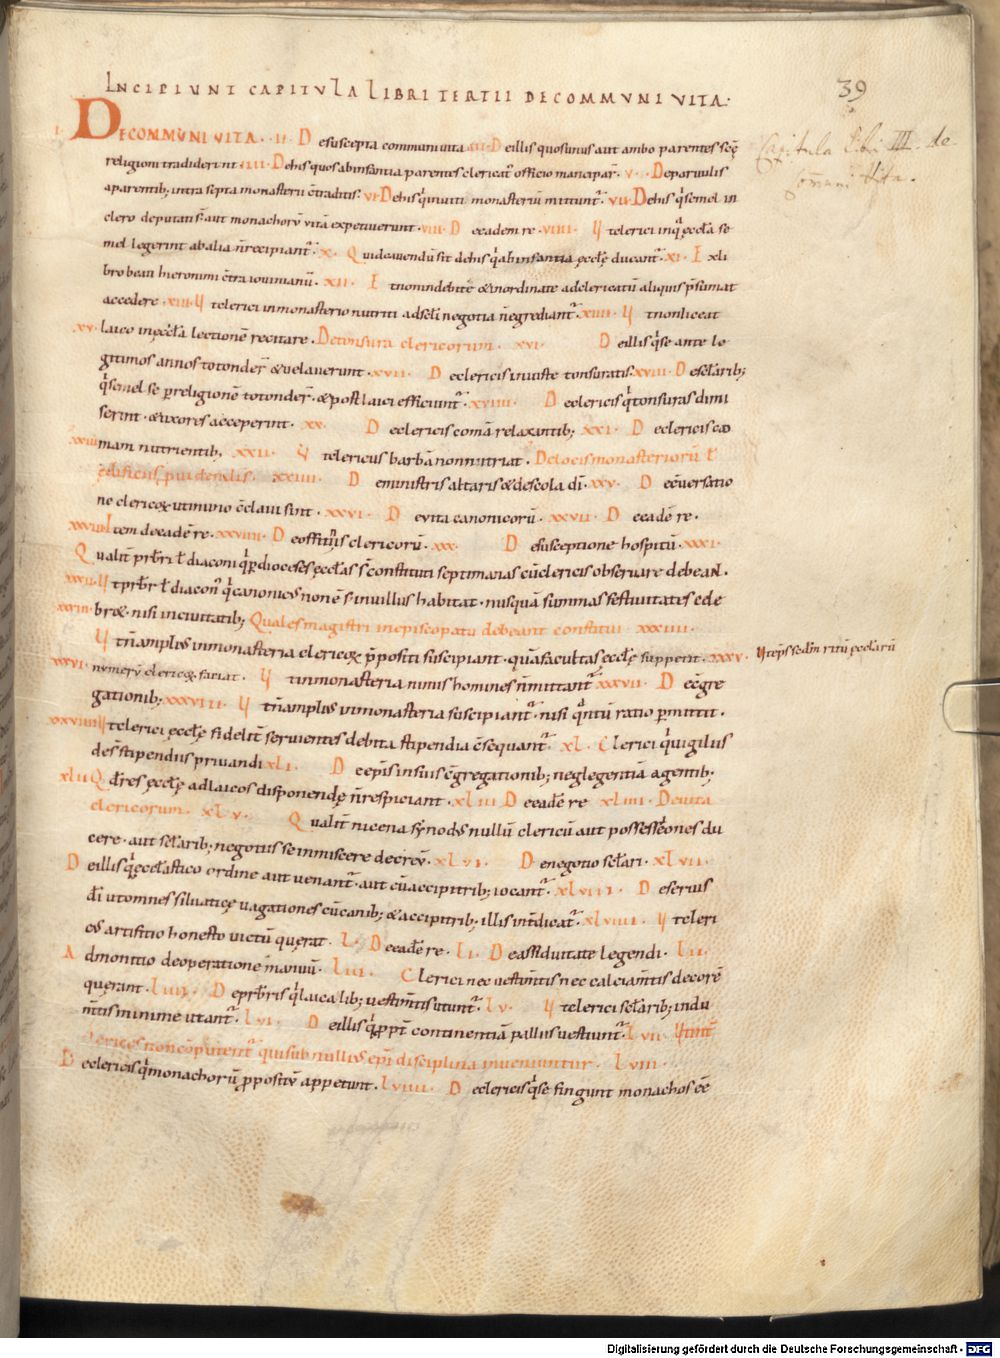 INCIPIUNT CAPITULA LIBRI TERTII DE COMMVNI VITA:
39
I. DE COMMVNI VITA. II. De suscepta communi vita. III. De illis quos unus aut ambo parentes scę
Capitula Libri III. de
Com̄uni Vita.
religioni tradiderint. IIII. De his quos ab infantia parentes clericat' officio manciparт. V. De parvulis
a parentib; intra septa monasterii c̄traditis. VI. De his q' inviti monasteriū mittunt'. VII. De his q' semel in
clero deputati s̄t aut monachorū vitā expetiverunt. VIII. De eadem re. VIIII. Ut clerici in q' eccl̄a se
mel legerint ab alia n̄ recipiant'. X. Quid cavendū sit de his q' ab infantia ęccl̄ę ducant'. XI. Ex li
bro beati hieronimi c̄tra iovinianū. XII. Ut non indebite & inordinate ad clericatū aliquis p̄sumat
accedere. XIII. Ut clerici in monasterio nutriti ad sc̄li negotia n̄ egrediant'. XIIII. Ut non liceat
XV. laico in ęccl̄a lectionē recitare. De tonsura clericorum. XVI. De illis q' se ante le
gitimos annos totonder̄ & velaverunt. XVII. De clericis iniuste tonsuratis. XVIII. De sc̄larib;
q' semel se p religionē totonder̄. & post laici efficiunt'. XVIIII. De clericis q' tonsuras dimi
serint. & uxores acceperint. XX. De clericis comā relaxantib; XXI. De clericis co
XXIII mam nutrientib; XXII. Ut clericus barbā non nutriat. De locis monasteriorū l̄
ędificiis pvidendis. XXIIII. De ministris altaris & de scola dī. XXV. De c̄versatio
ne clericoꝝ ut in uno c̄clavi sint. XXVI. De vita canonicorū. XXVII. De eadē re.
XXVIII. Item de eadē re. XXVIIII. De offitiis clericorū. XXX. De susceptione hospitū. XXXI.
Qualit' pr̄br̄i l̄ diaconi q' p dioceses ęccl̄as s̄ constituti septimanas cū clericis observare debean̄.
XXXII. Ut pr̄br̄ l̄ diacon' q' canonicus non ē s. in villus habitat. nusquā summas festivitates cele
XXXIII. br&. nisi in civitatib; Quales magistri in episcopatu debeant constitui. XXXIIII.
Ut n̄ amplius in monasteria clericoꝝ p̄positi suscipiant. quā facultas ęccl̄ę suppetit. XXXV. Ut ep̄s scdm ritū ęccl̄arū
XXXVI. numerū clericoꝝ faciat. Ut in monasteria nimis homines n̄ mittant'. XXXVII. De c̄gre
gationib; XXXVIII. Ut n̄ amplius in monasteria suscipiant'. nisi q'ntū ratio pmittit.
XXXVIIII Ut clerici ęccl̄ę fidelit' servientes debita stipendia c̄sequant'. XL. Clerici q' vigiliis
des̄t stipendiis privandi. XLI. De ep̄is in suis c̄gregationib; neglegentiā agentib;
XLII Qd res ęccl̄ę ad laicos disponendę n̄ respiciant. XLIII De eadē re XLIIII. De vita
clericorum. XLV. Qualit' nicena synodus nullū clericū aut possessiones du
cere. aut sc̄larib; negotiis se inmiscere decrev̄. XLVI. De negotio sc̄lari. XLVII.
De illis q' ęccl̄astico ordine aut venant'. aut cū accipitrib; iocant'. XLVIII. De servis
dī ut omnes silvaticę vagationes cū canib; & accipitrib; illis int̄dicat'. XLVIIII. Ut cleri
cus artifitio honesto victū querat. L. De eadē re. LI. De assiduitate legendi. LII.
Admonitio de operatione manuū. LIII. Clerici nec vestim̄tis nec calciam̄tis decorē
querant. LIIII. De pr̄br̄is q' laicalib; vestim̄tis utunt'. LV. Ut clerici sc̄larib; indu
m̄tis minime utant'. LVI. De illis q' ppt' continentiā palliis vestiunt'. LVII. Ut int'
clericos non c̄putent' qui sub nullius ep̄i disciplina inveniuntur. LVIII.
De clericis q' monachorū ppositū appetunt. LVIIII. De clericis q' se fingunt monachos ēē
Digitalisierung gefördert durch die Deutsche Forschungsgemeinschaft - DFG